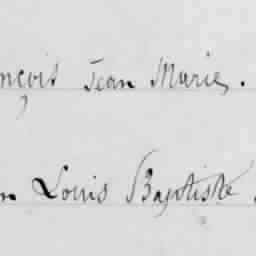 nçois Jean Marie.
n Louis Baptiste